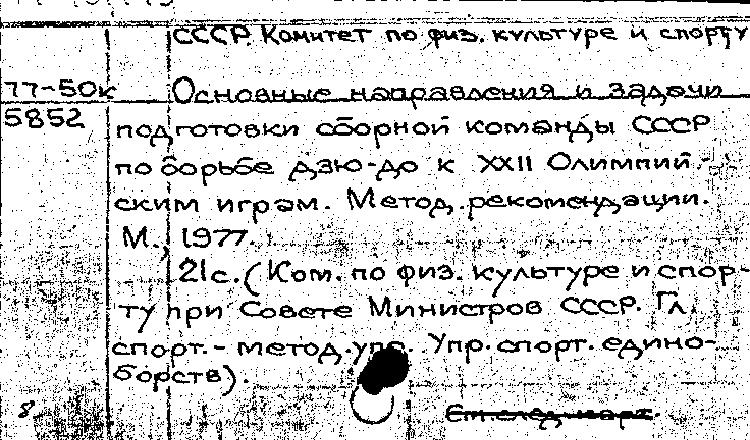 СССР. Комитет по физ. культуре и спорту
77-50к Основные направления и задачи
5852 подготовки сборной команды СССР
по борьбе дзю-до к XXII Олимпий-
ским играм. Метод. рекомендации.
М., 1977.
21с. (Ком. по физ. культуре и спор-
ту при Совете Министров СССР. Гл.
спорт.-метод.упр. Упр.спорт.едино-
борств).
8 См.след.карт.